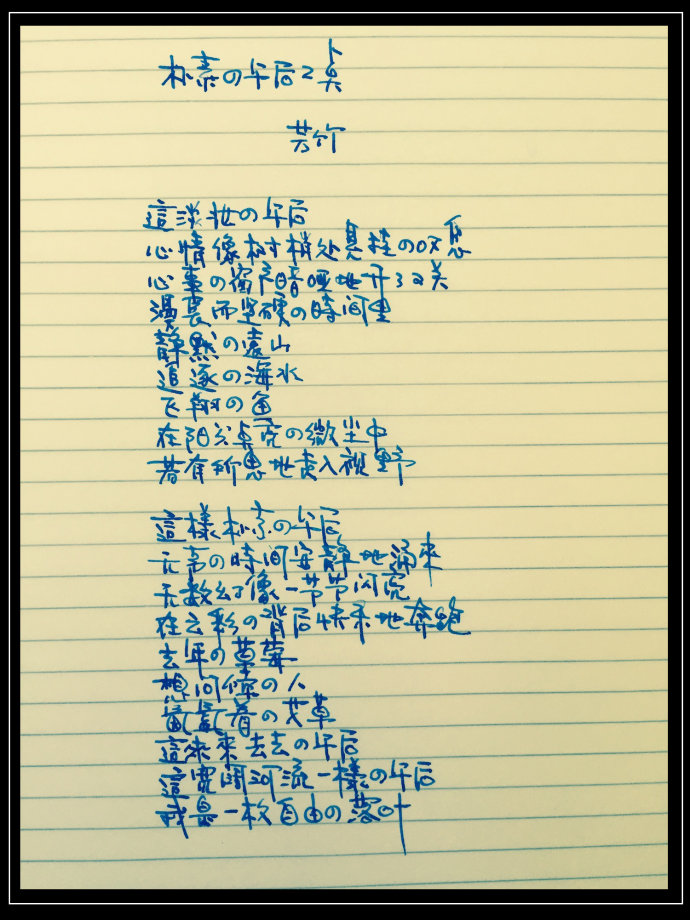 朴素の午后之桌
芳竹
這淡妆の午后
心情像树梢处悬挂の叹息
心事の窗户暗哑地开了又关
漫長而坚硬の時间里
静默の遠山
追逐の海水
飞翔の鱼
在阳光桌亮の微尘中
若有所思地走入視野
這樣朴素の午后
无声の時间安静地涌來
无数幻像一节节闪亮
在云彩の背后快乐地奔跑
去年の草莓
想问候の人
氤氲着の艾草
這來來去去の午后
這宽阔河流一樣の午后
我是一枚自由の落叶